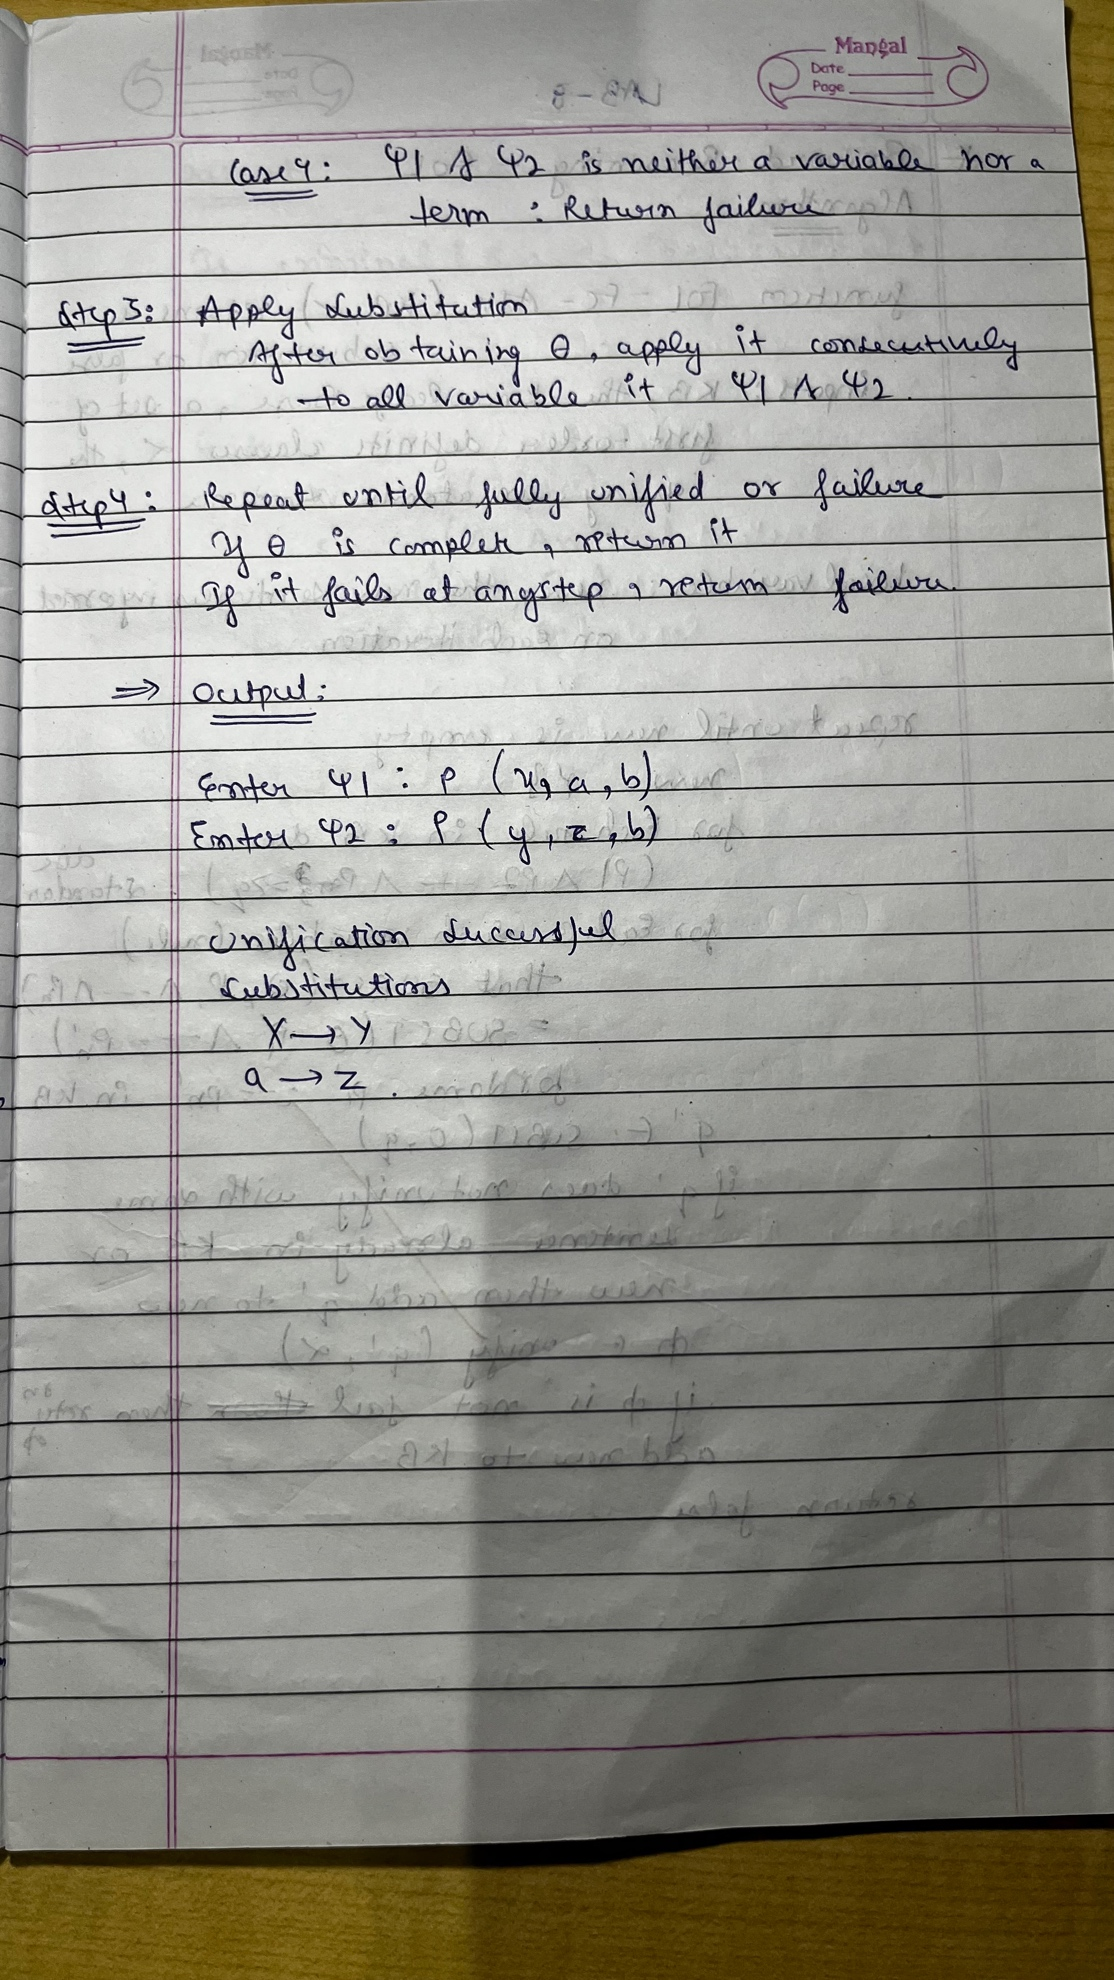 Mangal
Date
Page
Case 4: Ψ1 & Ψ2 is neither a variable nor a
term : Return failure
Step 3: Apply Substitution
After obtaining θ, apply it consecutively
to all variable it Ψ1 & Ψ2.
Step 4: Repeat until fully unified or failure
If θ is complete, return it
If it fails at anystep, return failure.
⇒ Output:
Enter Ψ1 : P (x, a, b)
Enter Ψ2 : P (y, z, b)
Unification Successful
Substitutions
X → Y
a → z.